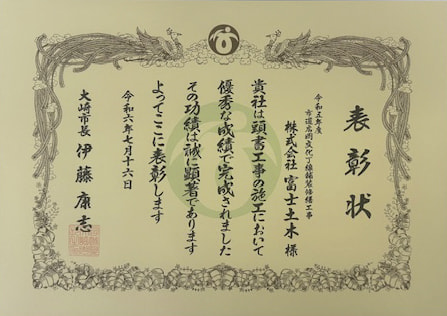 表彰状
令和五年度
株式会社 富士土木 様
貴社は頭書工事の施工において
優秀な成績で完成されました
その功績は誠に顕著であります
よってここに表彰します
令和六年七月十六日
大崎市長 伊藤康志